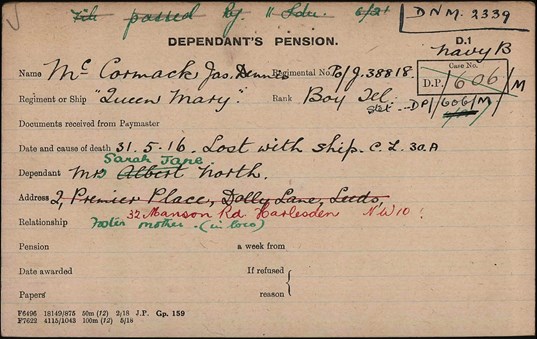 File passed by 11 Ldr. 6/21
DNM. 2339
DEPENDANT'S PENSION.
D.1
Navy B
Name Mc Cormack Jas. Dennis Regimental No. Po/J.38818.
Case No.
D.P./606/M
Regiment or Ship "Queen Mary". Rank Boy Tel.
DP/606/M/
Documents received from Paymaster
Date and cause of death 31.5.16. Lost with ship. C.L. 30.A
Sarah Jane
Dependant Mrs Albert North.
Address 2, Premier Place, Dolly Lane, Leeds,
32 Manson Rd Harlesden NW10.
Relationship Foster mother. (in loco)
Pension a week from
Date awarded If refused
Papers reason
F6496 18149/875 50m (12) 2/18 J.P. Gp. 159
F7622 4115/1043 100m (12) 5/18